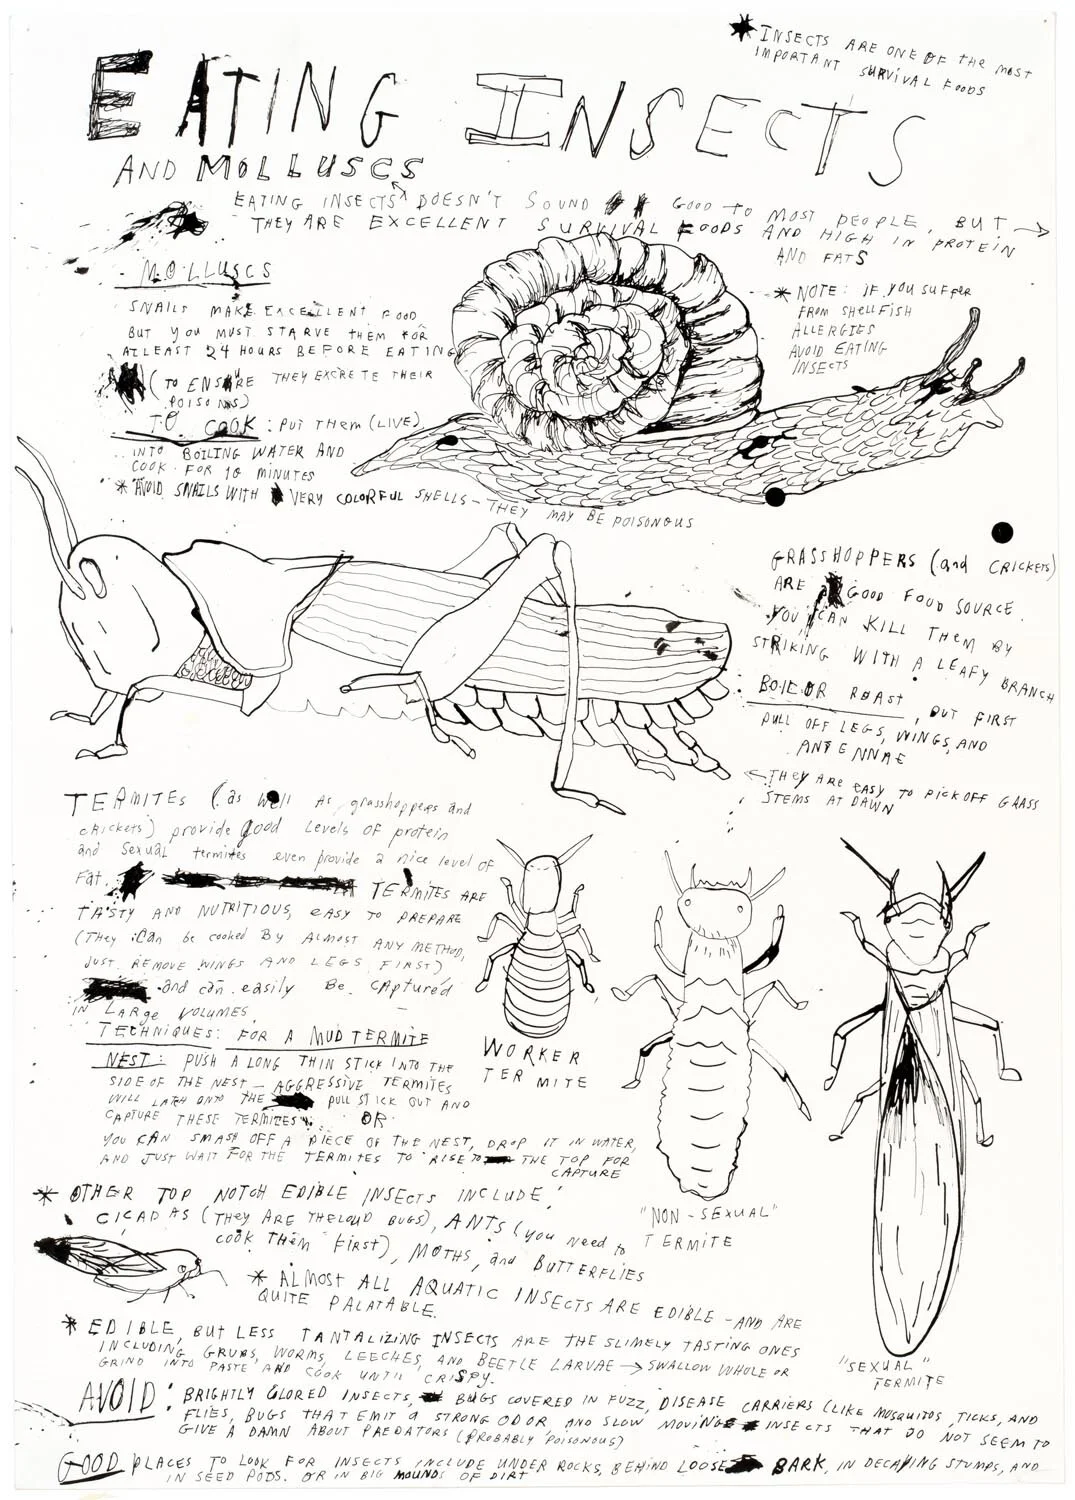 * INSECTS ARE ONE OF THE MOST
IMPORTANT SURVIVAL FOODS
EATING INSECTS
AND MOLLUSCS
EATING INSECTS ^ DOESN'T SOUND GOOD TO MOST PEOPLE, BUT →
THEY ARE EXCELLENT SURVIVAL FOODS AND HIGH IN PROTEIN
AND FATS
MOLLUSCS
SNAILS MAKE EXCELLENT FOOD
BUT YOU MUST STARVE THEM FOR
ATLEAST 24 HOURS BEFORE EATING
(TO ENSURE THEY EXCRETE THEIR
POISONS)
TO COOK: PUT THEM (LIVE)
INTO BOILING WATER AND
COOK FOR 10 MINUTES
* AVOID SNAILS WITH VERY COLORFUL SHELLS - THEY MAY BE POISONOUS
* NOTE: IF YOU SUFFER
FROM SHELLFISH
ALLERGIES
AVOID EATING
INSECTS
GRASSHOPPERS (and CRICKETS)
ARE GOOD FOOD SOURCE.
YOU CAN KILL THEM BY
STRIKING WITH A LEAFY BRANCH
BOIL OR ROAST, BUT FIRST
PULL OFF LEGS, WINGS, AND
ANTENNAE
← THEY ARE EASY TO PICK OFF GRASS
STEMS AT DAWN
TERMITES (as well As grasshoppers and
crickets) provide good levels of protein
and sexual termites even provide a nice level of
Fat. TERMITES ARE
TASTY AND NUTRITIOUS, EASY TO PREPARE
(They Can be cooked BY ALMOST ANY METHOD,
JUST REMOVE WINGS AND LEGS FIRST)
and can easily Be CAPTURED
IN LARGE VOLUMES.
TECHNIQUES: FOR A MUD TERMITE
NEST: PUSH A LONG THIN STICK INTO THE
SIDE OF THE NEST - AGGRESSIVE TERMITES
WILL LATCH ONTO THE PULL STICK OUT AND
CAPTURE THESE TERMITES. OR
YOU CAN SMASH OFF A PIECE OF THE NEST, DROP IT IN WATER,
AND JUST WAIT FOR THE TERMITES TO RISE TO THE TOP FOR
CAPTURE
WORKER
TERMITE
"NON-SEXUAL"
TERMITE
"SEXUAL"
TERMITE
* OTHER TOP NOTCH EDIBLE INSECTS INCLUDE:
CICADAS (THEY ARE THE LOUD BUGS), ANTS (you Need to
COOK THEM FIRST), MOTHS, and BUTTERFLIES
* ALMOST ALL AQUATIC INSECTS ARE EDIBLE - AND ARE
QUITE PALATABLE.
* EDIBLE, BUT LESS TANTALIZING INSECTS ARE THE SLIMELY TASTING ONES
INCLUDING GRUBS, WORMS, LEECHES, AND BEETLE LARVAE → SWALLOW WHOLE OR
GRIND INTO PASTE AND COOK UNTIL CRISPY.
AVOID: BRIGHTLY COLORED INSECTS, BUGS COVERED IN FUZZ, DISEASE CARRIERS (LIKE MOSQUITOS, TICKS, AND
FLIES, BUGS THAT EMIT a STRONG ODOR, AND SLOW MOVING INSECTS THAT DO NOT SEEM TO
GIVE A DAMN ABOUT PREDATORS (PROBABLY POISONOUS)
GOOD PLACES TO LOOK FOR INSECTS INCLUDE UNDER ROCKS, BEHIND LOOSE BARK, IN DECAYING STUMPS, AND
IN SEED PODS. OR IN BIG MOUNDS OF DIRT